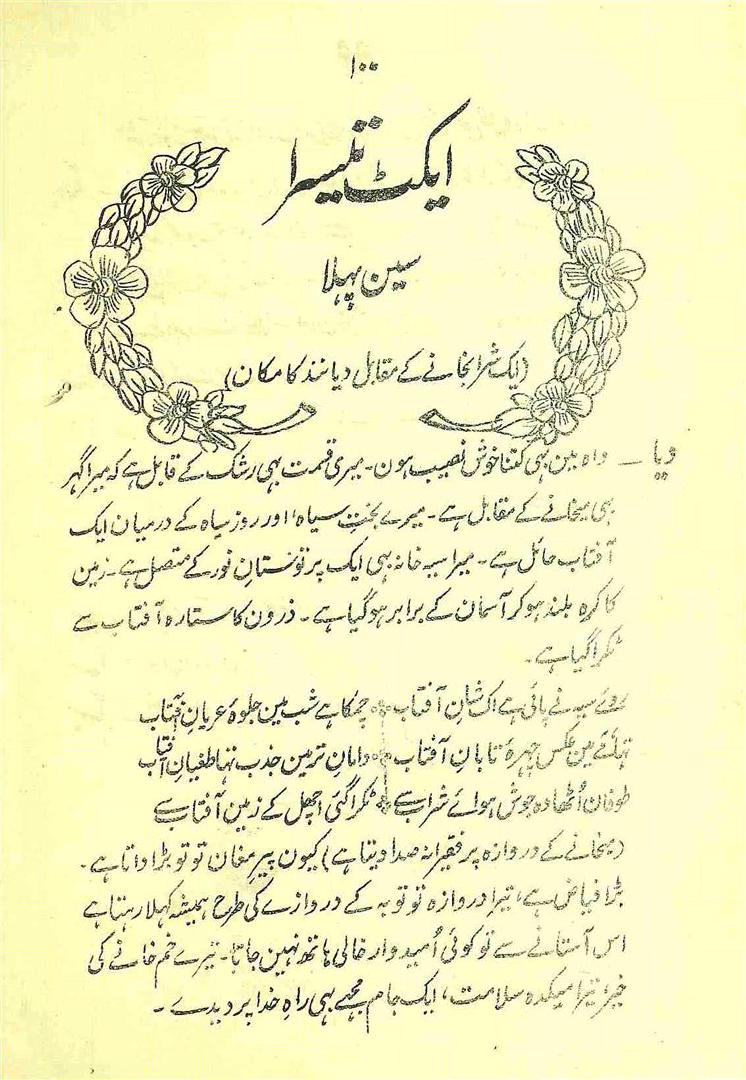 ۱۰۰
ایکٹ تیسرا
سین پہلا
(ایک شرابخانے کے مقابل دیانند کا مکان)
دیا — واہ مین بہی کتنا خوش نصیب ہون۔ میری قسمت بہی رشک کے قابل ہے کہ میرا گہر
بہی میخانے کے مقابل ہے۔ میرے بختِ سیاہ اور روز سیاہ کے درمیان ایک
آفتاب حائل ہے۔ میرا سیہ خانہ بہی ایک پر تو ستانِ نور کے متصل ہے۔ زمین
کا کرہ بلند ہو کر آسمان کے برابر ہو گیا ہے۔ ذرون کا ستارہ آفتاب سے
ٹکرا گیا ہے۔
روے سیہ نے پائی ہے اک شانِ آفتاب چمکا ہے شب مین جلوۂ عریانِ آفتاب
تہا مے مین عکس چہرۂ تابانِ آفتاب دامانِ تر مین جذب تہا طغیانِ آفتاب
طوفان اُٹھا وہ جوش ہوائے شراب سے ٹکرا گئی اچھل کے زمین آفتاب سے
(میخانے کے دروازہ پر فقیرانہ صدا دیتا ہے) کیون پیرِ مغان تو تو بڑا داتا ہے۔
بڑا فیاض ہے، تیرا دروازہ تو توبہ کے دروازے کی طرح ہمیشہ کہلا رہتا ہے
اس آستانے سے تو کوئی اُمیدوار خالی ہاتھ نہین جاتا۔ تیرے خم خانے کی
خیر، تیرا میکدہ سلامت، ایک جام مجہے بہی راہِ خدا پر دیدے۔